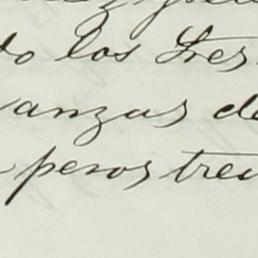 do los tres
anzas de
pesos trei